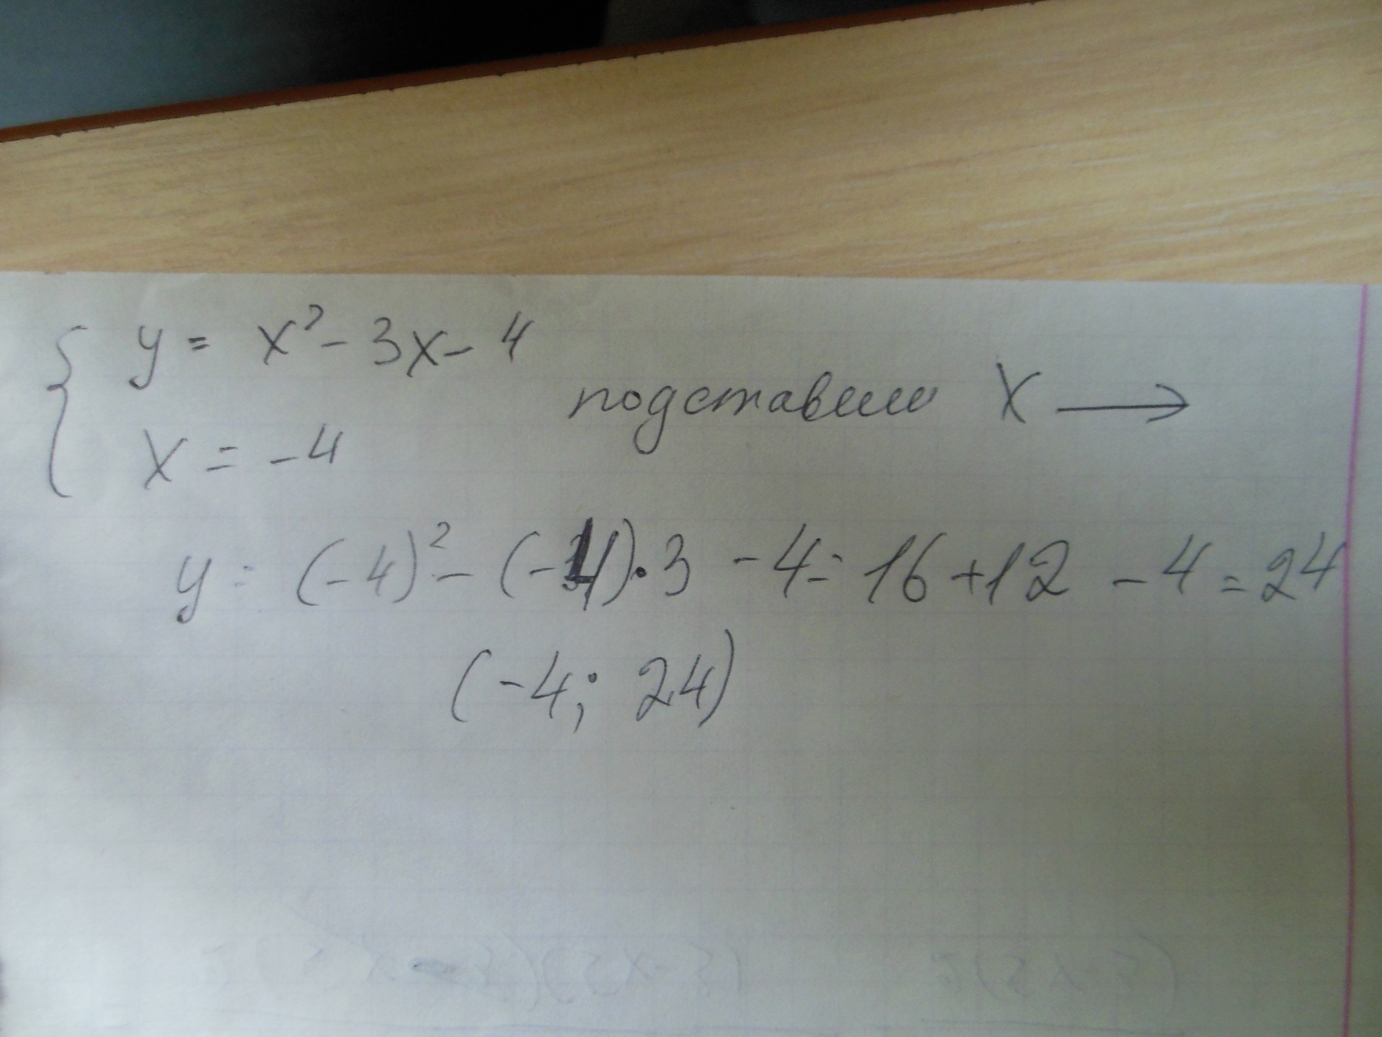 y = x² - 3x - 4
x = -4
подставим x →
y = (-4)² - (-4)·3 - 4 = 16 + 12 - 4 = 24
(-4; 24)